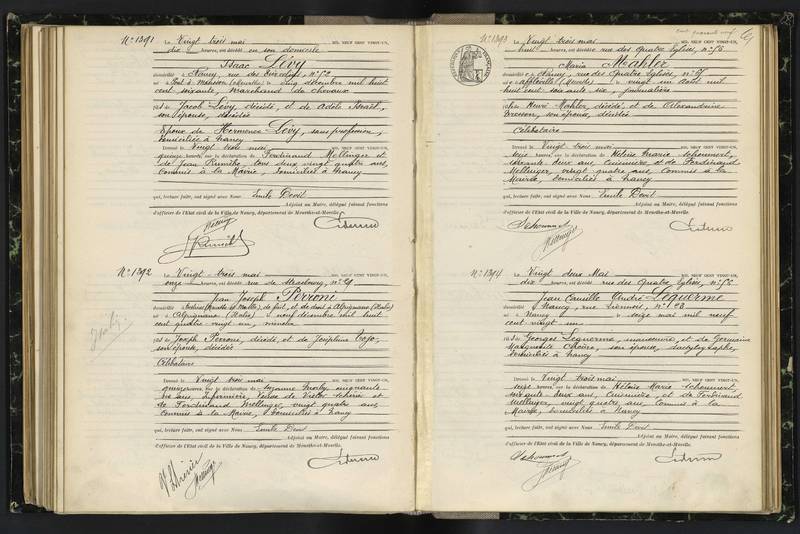 N° 1391
Le Vingt trois mai MIL NEUF CENT VINGT-UN,
dix heures, est décédé en son domicile
Isaac Lévy
domicilié à Nancy, rue des
né à décembre mil huit
cent soixante, marchand de chevaux
fils de Jacob Lévy, décédé, et de Adèle Israël,
son épouse, décédée
Epoux de Hermance Lévy, sans profession,
domiciliée à Nancy
Dressé le Vingt trois mai MIL NEUF CENT VINGT-UN,
quinze heures, sur la déclaration de Ferdinand Mellinger et
de Jean tous deux vingt quatre ans,
commis à la Mairie, domiciliés à Nancy
qui, lecture faite, ont signé avec Nous Emile Devit
Adjoint au Maire, délégué faisant fonctions
d'officier de l'Etat civil de la Ville de Nancy, département de Meurthe-et-Moselle.
N° 1392
Le Vingt trois mai MIL NEUF CENT VINGT-UN,
onze heures, est décédé rue de Strasbourg, n°
Jean Joseph Perroni
domicilié de fait, et de droit à Alpignano (Italie)
né à Alpignano (Italie) le neuf décembre mil huit
cent quatre vingt un, mineur
fils de Joseph Perroni, décédé, et de Joséphine
son épouse, décédée
Célibataire
Dressé le Vingt trois mai MIL NEUF CENT VINGT-UN,
quinze heures, sur la déclaration de Suzanne cinquante
ans, infirmière, Veuve de Victor et
de Ferdinand Mellinger, vingt quatre ans,
commis à la Mairie, domiciliés à Nancy
qui, lecture faite, ont signé avec Nous Emile Devit
Adjoint au Maire, délégué faisant fonctions
d'officier de l'Etat civil de la Ville de Nancy, département de Meurthe-et-Moselle.
N° 1393
Le Vingt trois mai MIL NEUF CENT VINGT-UN,
huit heures, est décédée rue des Quatre Eglises, n°
Maria Mahler
domiciliée à Nancy, rue des Quatre Eglises, n°
née à (Meurthe) le vingt un août mil
huit cent soixante six, journalière
fille de Hervé Mahler, décédé, et de Alexandrine
son épouse, décédée
Célibataire
Dressé le Vingt trois mai MIL NEUF CENT VINGT-UN,
seize heures, sur la déclaration de Héloïse Marie Schouwert,
soixante deux ans, cuisinière et de Ferdinand
Mellinger, vingt quatre ans, commis à la
Mairie, domiciliés à Nancy
qui, lecture faite, ont signé avec Nous Emile Devit
Adjoint au Maire, délégué faisant fonctions
d'officier de l'Etat civil de la Ville de Nancy, département de Meurthe-et-Moselle.
N° 1394
Le Vingt deux Mai MIL NEUF CENT VINGT-UN,
dix heures, est décédé rue des Quatre Eglises, n°
Jean Camille André Leguerme
domicilié à Nancy, rue
né à Nancy le seize mai mil neuf
cent vingt un
fils de Georges Leguerme, manoeuvre, et de Germaine
Marguerite son épouse, dactylographe,
domiciliés à Nancy
Dressé le Vingt trois mai MIL NEUF CENT VINGT-UN,
seize heures, sur la déclaration de Héloïse Marie Schouwert
soixante deux ans, Cuisinière, et de Ferdinand
Mellinger, vingt quatre ans, Commis à la
Mairie, domiciliés à Nancy
qui, lecture faite, ont signé avec Nous Emile Devit
Adjoint au Maire, délégué faisant fonctions
d'officier de l'Etat civil de la Ville de Nancy, département de Meurthe-et-Moselle.